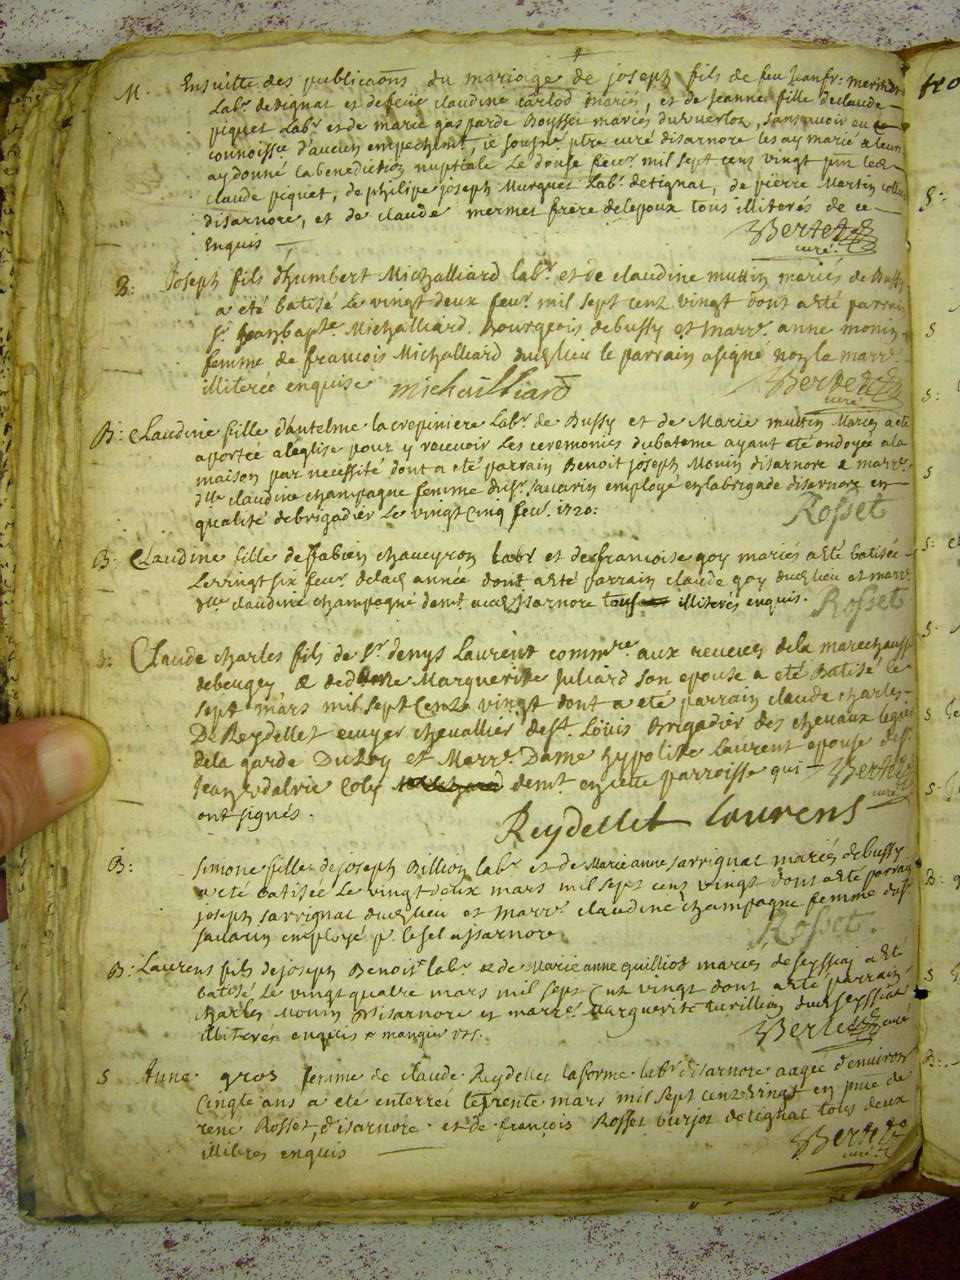 M. Ensuitte des publicaõns du mariage de joseph fils de feu jeanfr: mermet
Labr. detignat et defeüe claudine carlod mariés, et de jeanne fille declaude
piquet Labr. et de marie gasparde Boysset mariés , sans avoir eu
connoissce d'aucun empechemt. je soussné. ptre curé disarnore les ay marié et leur
ay donné la benediction nuptiale Le douse feur. mil sept cens vingt
claude piquet, de philipe joseph Murguet Labr. detignat, de pierre Martin
disarnore, et de claude mermet frère delepoux tous illiterés de ce
Enquis
Bertet
curé
B: Joseph fils d'humbert Michalliard labr. et de claudine muttin mariés de Bussy
a été batisé Le vingt deux feur. mil sept cent vingt dont a eté parrain
sr. jeanbapte Michalliard. Bourgeois debussy et marre. anne monin
femme de francois Michalliard dud lieu le parrain a signé non la marre.
illiterée enquise michailliard
Bertet
curé
B: Claudine fille d'antelme lacrepiniere Labr. de Bussy et de Marie muttin Mariés a eté
aportée aleglise pour y recevoir les ceremonies dubateme ayant eté ondoyée ala
maison par necessité dont a eté parrain Benoit joseph Monin disarnore & marre.
dlle claudine champagne femme dusr. savarin employé en labrigade disarnore en
qualité debrigadier Le vingt cinq feur. 1720:
Rosset
B: Claudine fille defabien chaveyron labr et defrancoise goy mariés a eté batisée
Le vingt six feur. delad année dont a eté parrain claude goy dud lieu et marre
dlle claudine champagne demt. aud isarnore illiterés enquis. Rosset
B: Claude charles fils de Sr. denys Laurent commre aux reveues dela marechaussée
debeugey & de dame Marguerite Juliard son epouse a eté Batisé le
sept mars mil sept Cents vingt dont a eté parrain claude charles
De Reydellet ecuyer chevallier de st. Louis Brigadier des chevaux legers
dela garde Du Roy et Marre. Dame hypolite Laurent epouse de sr.
demt. en cette parroisse qui Bertet
ont signés. curé
Reydellet Laurens
B: Simone fille dejoseph Billion labr. et de Marie anne sarrignat mariés debussy
a eté batisée Le vingt deux mars mil sept cent vingt dont a eté parrain
joseph sarrignat dud lieu et marre. claudine champagne femme du sr.
savarin employé pr. le sel a isarnore
Rosset.
B: Laurens fils dejoseph Benoit labr. & de Marie anne guilliot mariés deseyssiat a eté
batisé Le vingt quatre mars mil sept Cent vingt dont a eté parrain
charles Monin disarnore et marre. Marguerite turillion
illiterés enquis
Bertet curé
S Anne gros femme de claude Reydellet laforme labr. disarnore aagée d'environ
Cinqte ans a eté enterrée le trente mars mil sept cent vingt en pnce de
rené Rosset, d'isarnore et de françois Rosset detignat tous deux
illitérés enquis
Bertet
curé